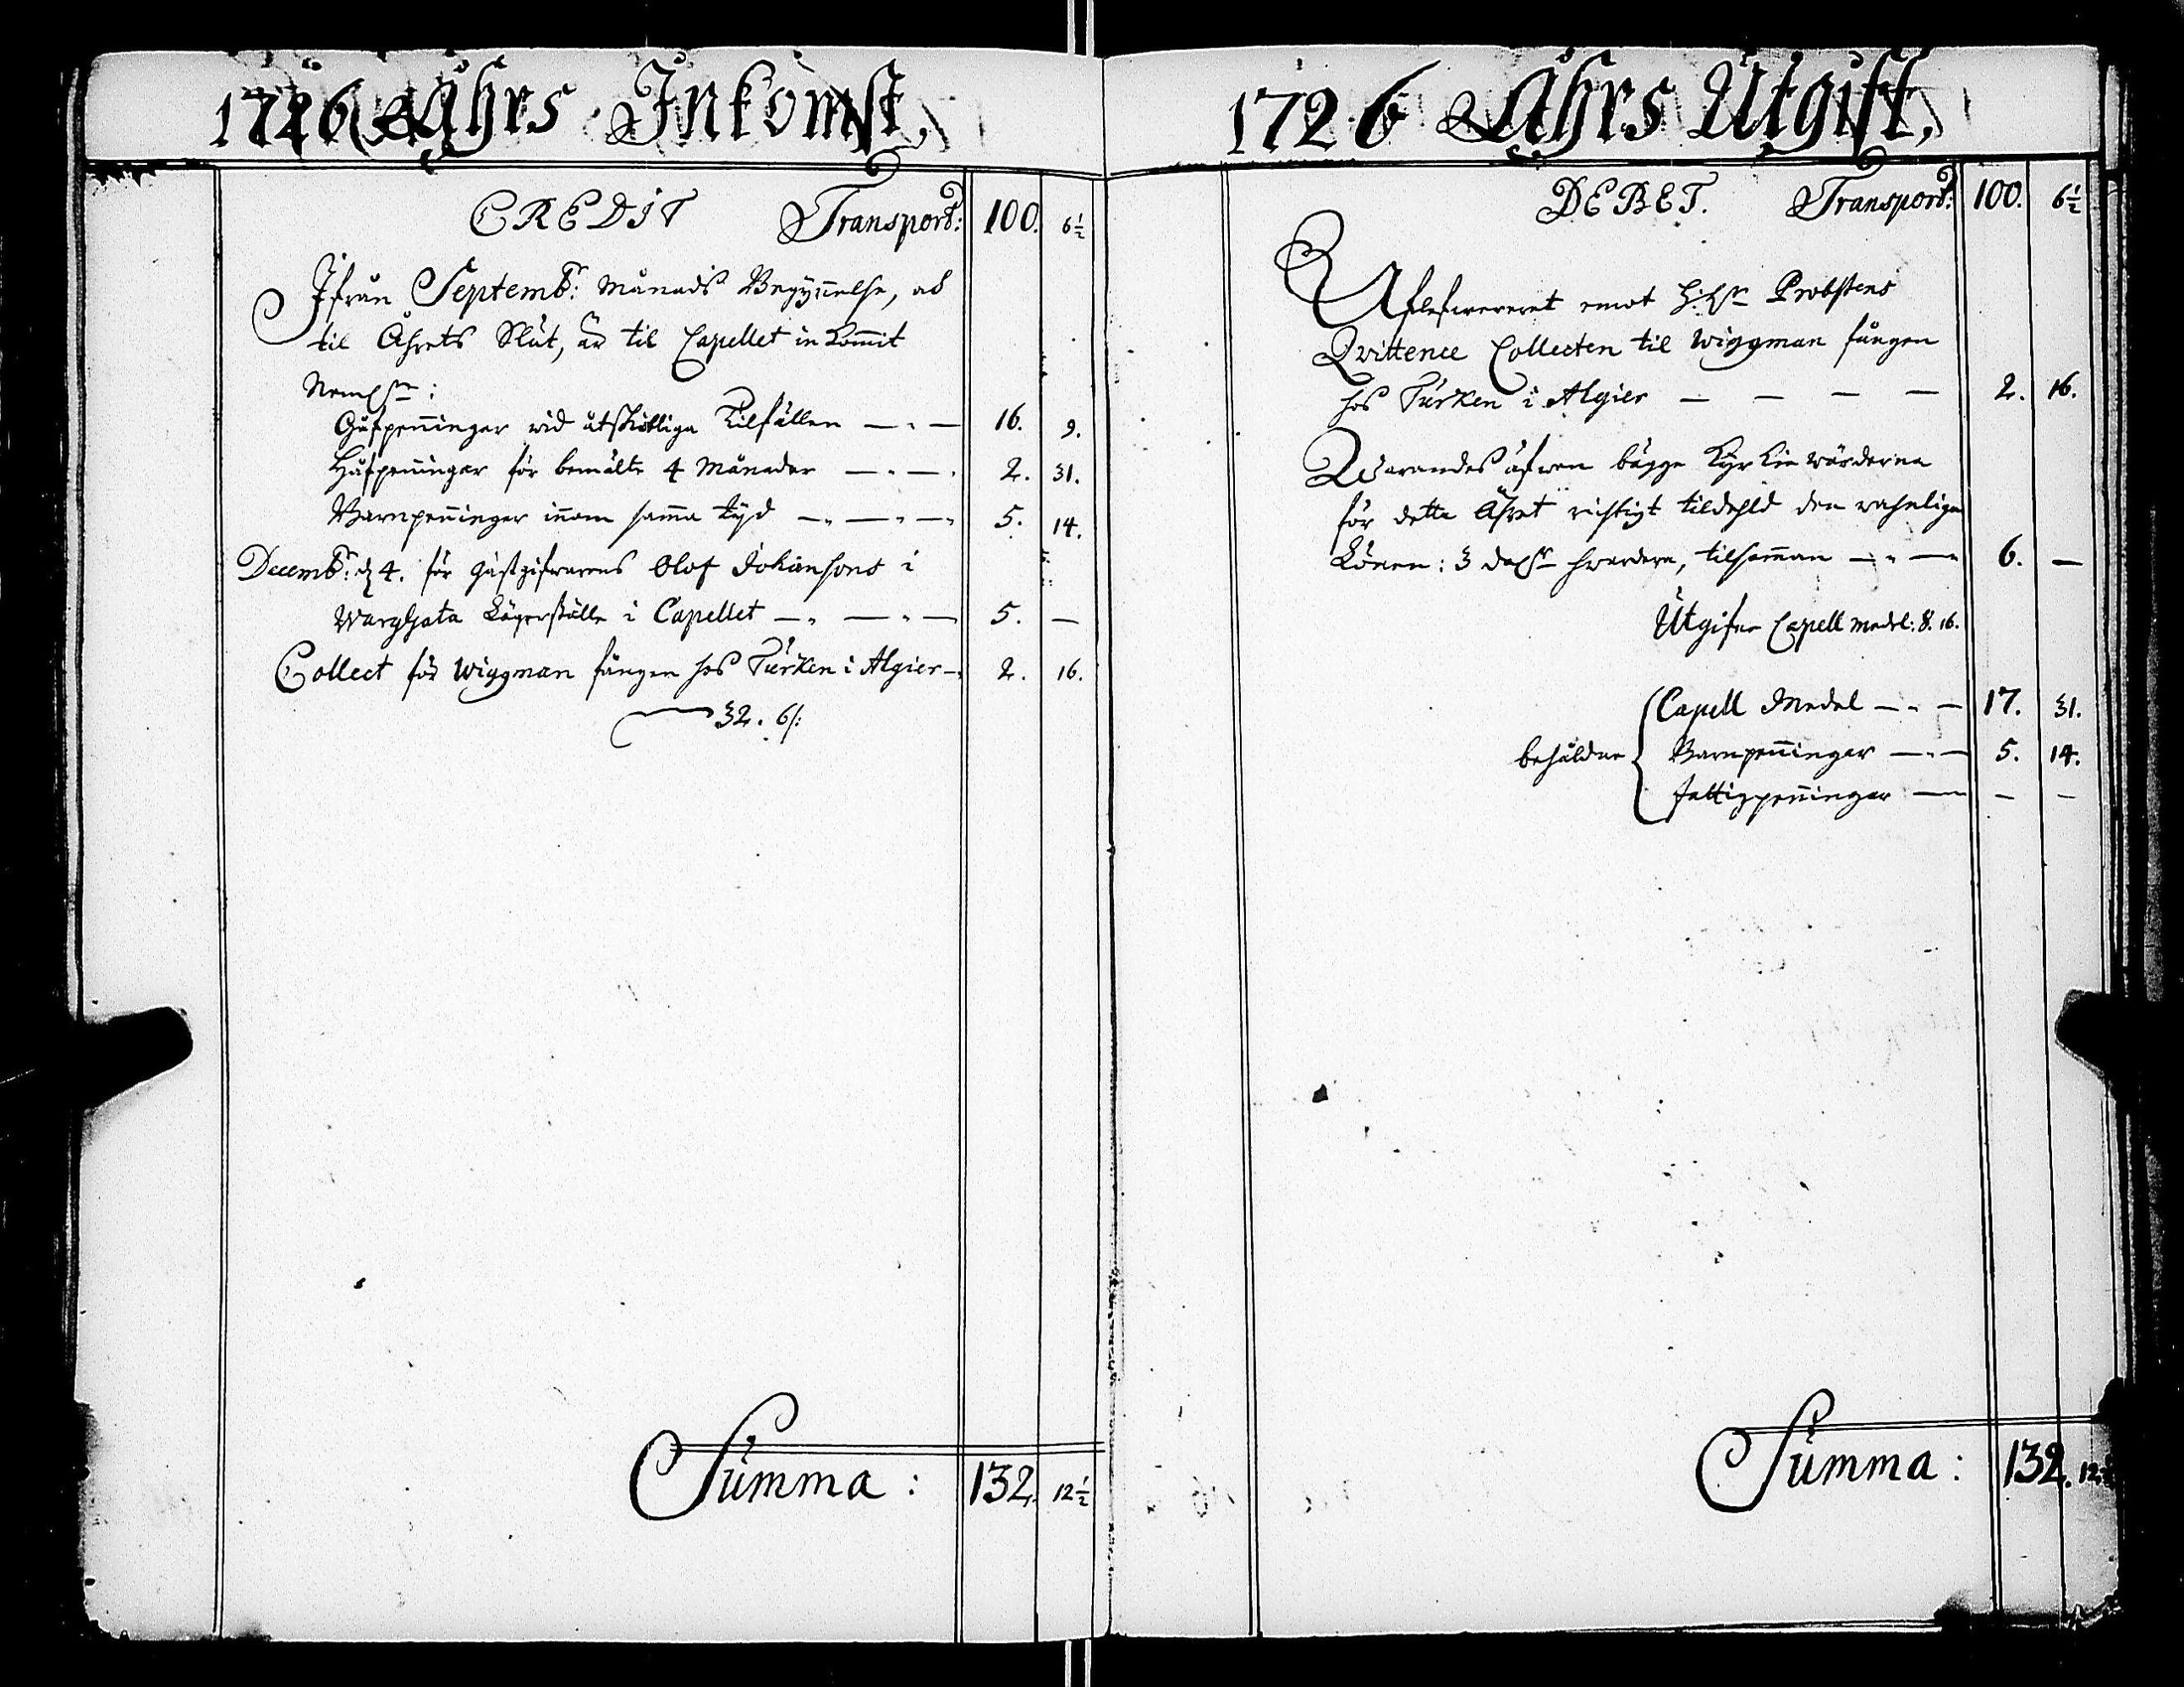 1726 Åhrs Inkomst,
CREDIT Transport: 100. 6½
Ifrån Septembr: Månads Begynnelse, alt
til Åhrets Slut, är til Capellet inkom̄it
Neml:
Gåfpen̄ingar wid åtskilliga Tilfällen — " — 16. 9.
Håfpen̄ingar för bemälte 4 Månader — " — 2. 31.
Barnpen̄ingar in̄om samma tyd — " — " — 5. 14.
Decembr: d 4. för Gästgifwarens Olof Johansons i
Warghata Lägerställe i Capellet — " — " — 5. —
Collect för Wiggman fången hos Turken i Algier — 2. 16.
32. 6/:
Summa: 132. 12½
1726 Åhrs Utgift,
DEBET. Transport: 100. 6½
Aflefwereret emot Probstens
Qvittence Collecten til Wiggman fången
hos Turken i Algier — — — — 2. 16.
Warandes äfwen bägge Kyrkiewärderna
för detta Åhret richtigt tildehld den wahnliga
Lönen: 3 dal: hwardera, tilsamman — " — 6. —
Utgifne Capell medel: 8. 16.
Capell Medel — " — 17. 31.
behåldne Barnpen̄ingar — " — 5. 14.
fattigpen̄ingar — — —
Summa: 132. 12½